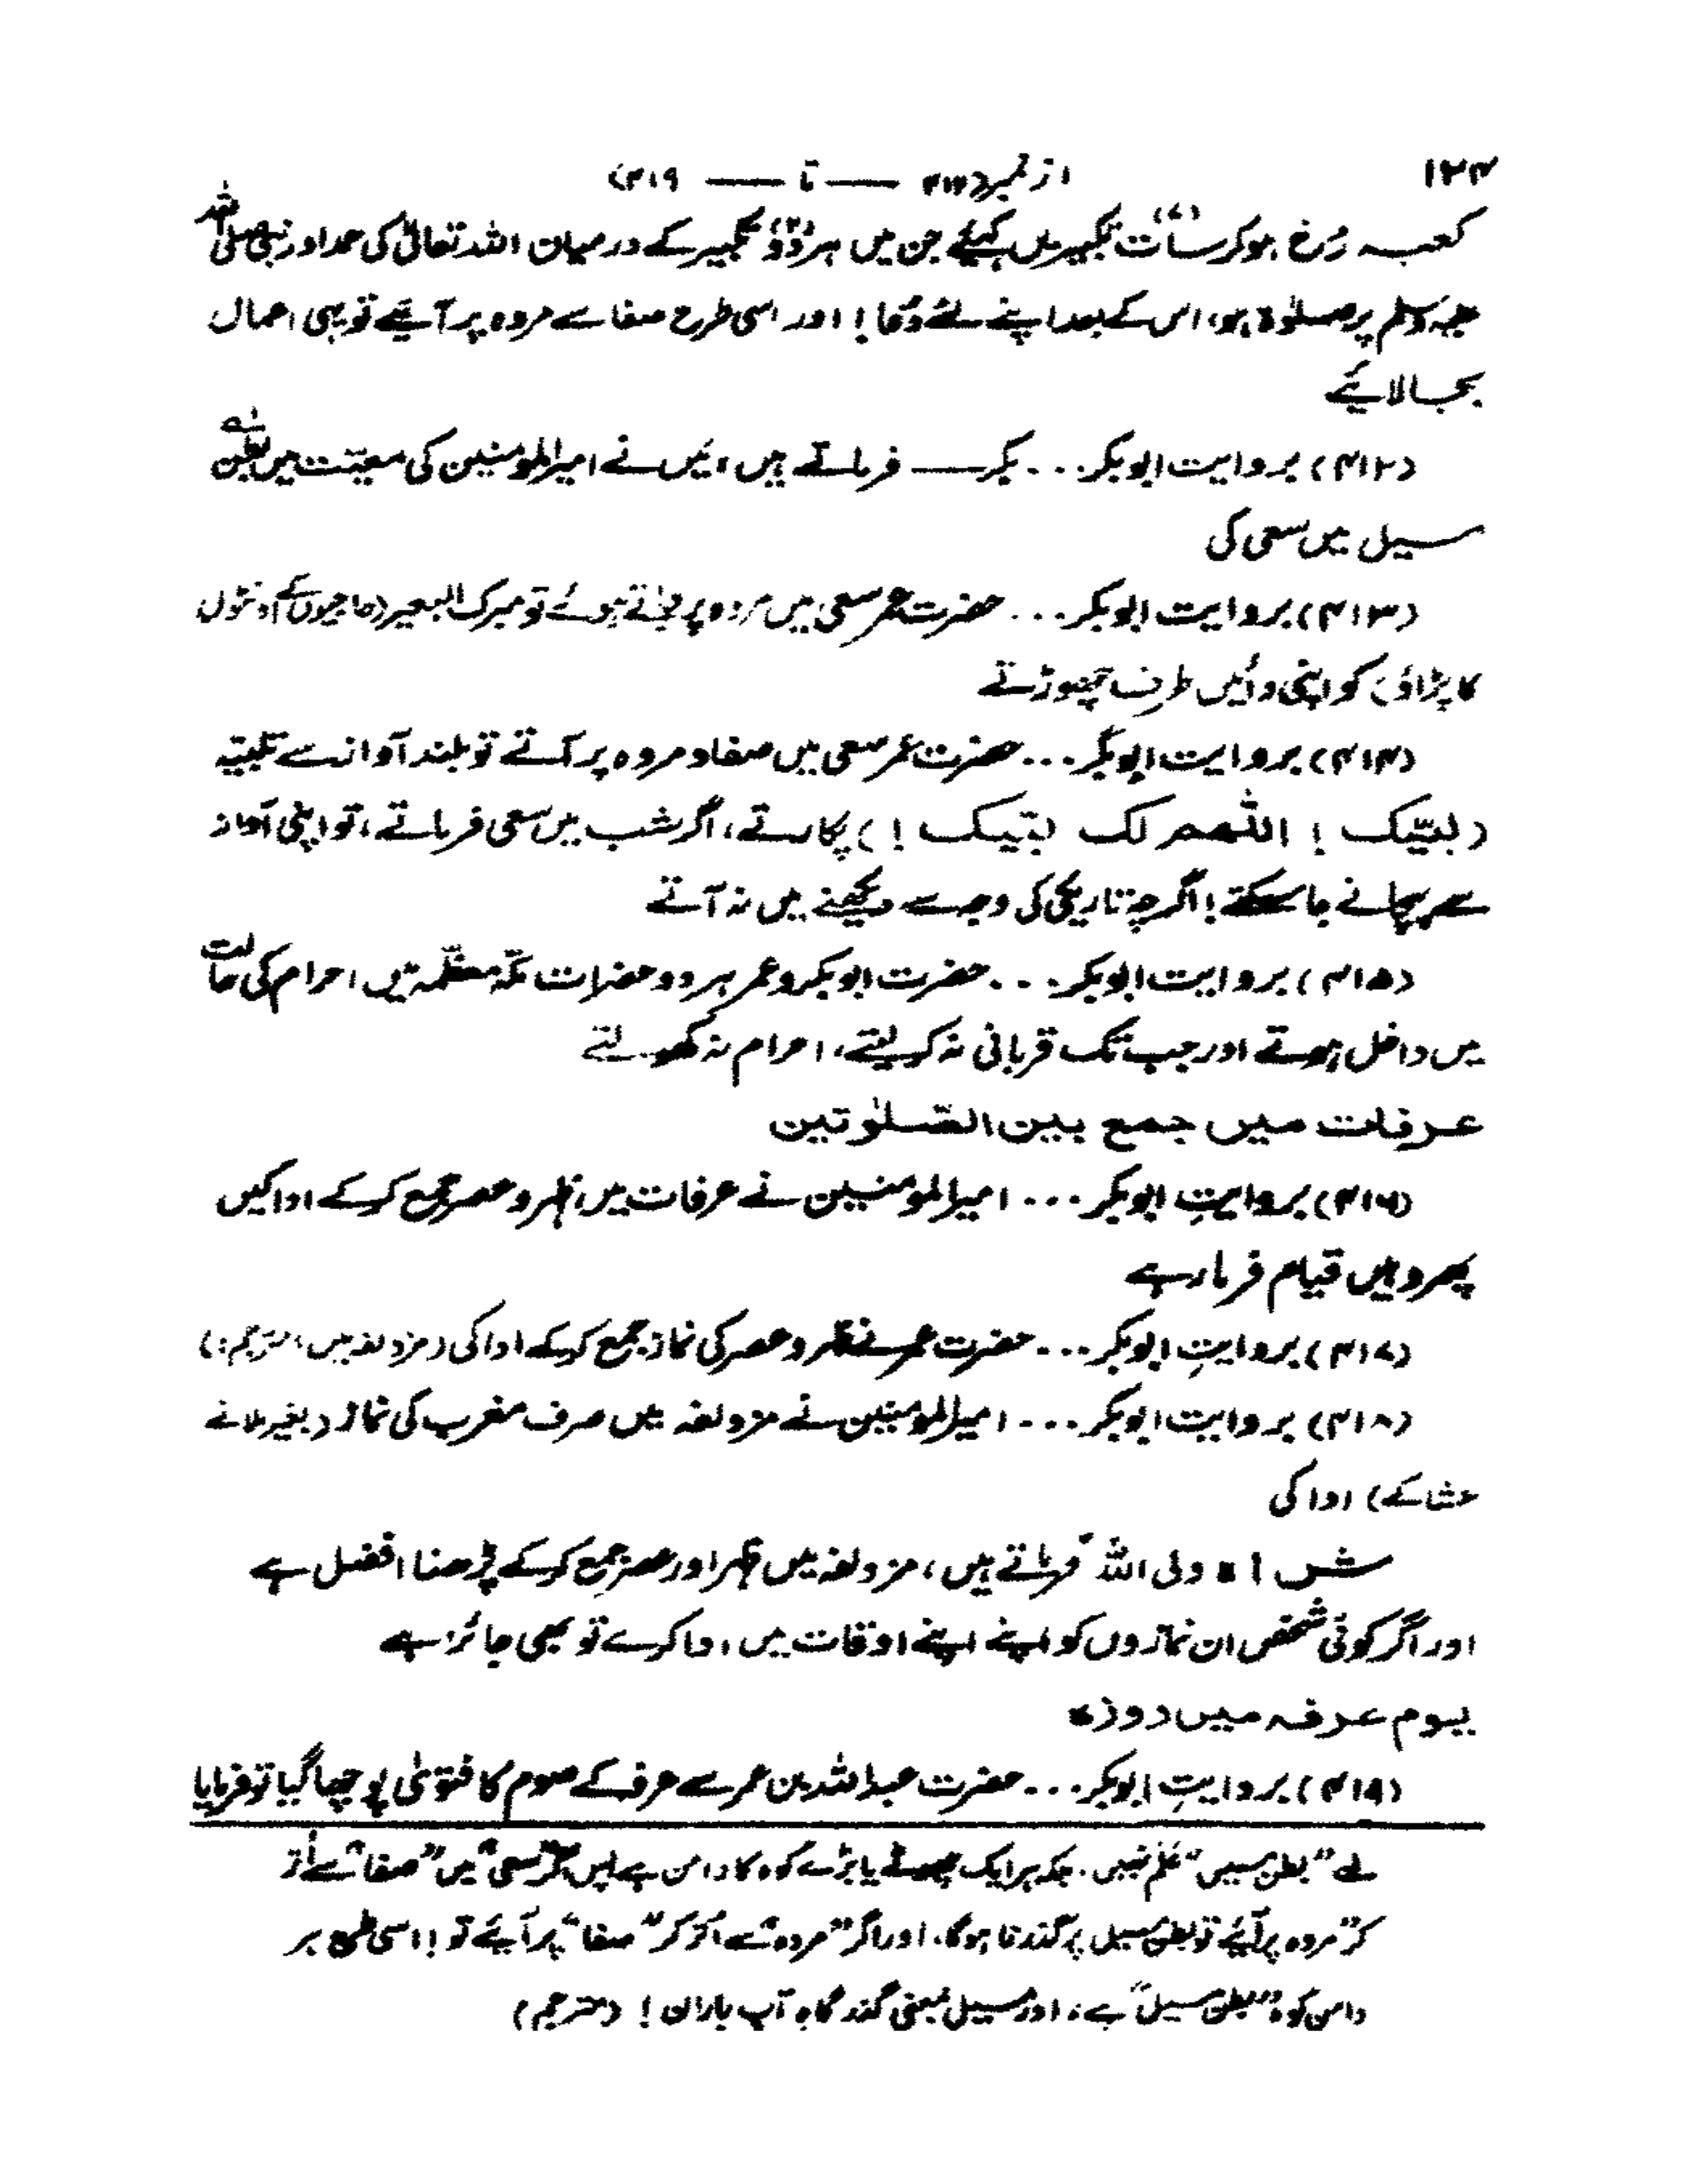 ۱۲۴
از نمبر ۴۱۲ — تا — ۴۱۹
کعبہ رُخ ہو کر سات (۷) تکبیریں کہیئے جن میں ہر دو (۲) تکبیر کے درمیان اللہ تعالیٰ کی حمد اور نبی صلی اللہ
علیہ وسلم پر صلوٰۃ ہو، اس کے بعد اپنے لئے دُعا! اور اسی طرح صفا سے مروہ پر آیئے تو یہی اعمال
بجالایئے
(۴۱۲) بروایت ابوبکر ... بکر — فرماتے ہیں، میں نے امیرالمؤمنین کی معیّت میں بطن
سیل میں سعی کی
(۴۱۳) بروایت ابوبکر ... حضرت عمر سعی میں مروہ پر جاتے ہوئے تو مبرک البعیر (حاجیوں کے اونٹوں
کا پڑاؤ) کو اپنی دائیں طرف چھوڑتے
(۴۱۴) بروایت ابوبکر ... حضرت عمر سعی میں صفا و مروہ پر آتے تو بلند آواز سے تلبیّہ
(لبّیک! اللّٰھم لک لبّیک!) پکارتے، اگر شب میں سعی فرماتے، تو اپنی آواز
سے پہچانے جا سکتے! اگرچہ تاریکی کی وجہ سے دیکھنے میں نہ آتے
(۴۱۵) بروایت ابوبکر ... حضرت ابوبکر و عمر ہر دو حضرات مکّہ معظّمہ میں احرام کی حالت
میں داخل ہوتے اور جب تک قربانی نہ کر لیتے، احرام نہ کھولتے
عرفات میں جمع بین الصّلوٰتین
(۴۱۶) بروایتِ ابوبکر ... امیرالمؤمنین نے عرفات میں ظہر و عصر جمع کر کے ادا کیں
پھر وہیں قیام فرما رہے
(۴۱۷) بروایتِ ابوبکر ... حضرت عمر نے ظہر و عصر کی نماز جمع کر کے ادا کی (مزدلفہ میں، مترجم:)
(۴۱۸) بروایت ابوبکر ... امیرالمؤمنین نے مزدلفہ میں صرف مغرب کی نماز (بغیر ملانے
عشا کے) ادا کی
ش ا۔ ولی اللہ فرماتے ہیں، مزدلفہ میں ظہر اور عصر جمع کر کے پڑھنا افضل ہے
اور اگر کوئی شخص ان نمازوں کو اپنے اپنے اوقات میں ادا کرے تو بھی جائز ہے
یوم عرفہ میں روزہ
(۴۱۹) بروایتِ ابوبکر ... حضرت عبداللہ بن عمر سے عرفہ کے صوم کا فتویٰ پوچھا گیا تو فرمایا
لے "بطن مسیل" عَلَم نہیں۔ بلکہ ہر ایک چھوٹے یا بڑے کوہ کا دامن ہے پس اگر "سعی" میں "صفا" سے اُتر
کر "مروہ پر آیئے تو بطن مسیل پر گذرنا ہوگا، اور اگر "مروہ" سے اُتر کر "صفا" پر آیئے تو! اسی طرح ہر
دامن کوہ "بطن مسیل" ہے، اور مسیل بمعنی گذرگاہِ آب باراں! (مترجم)